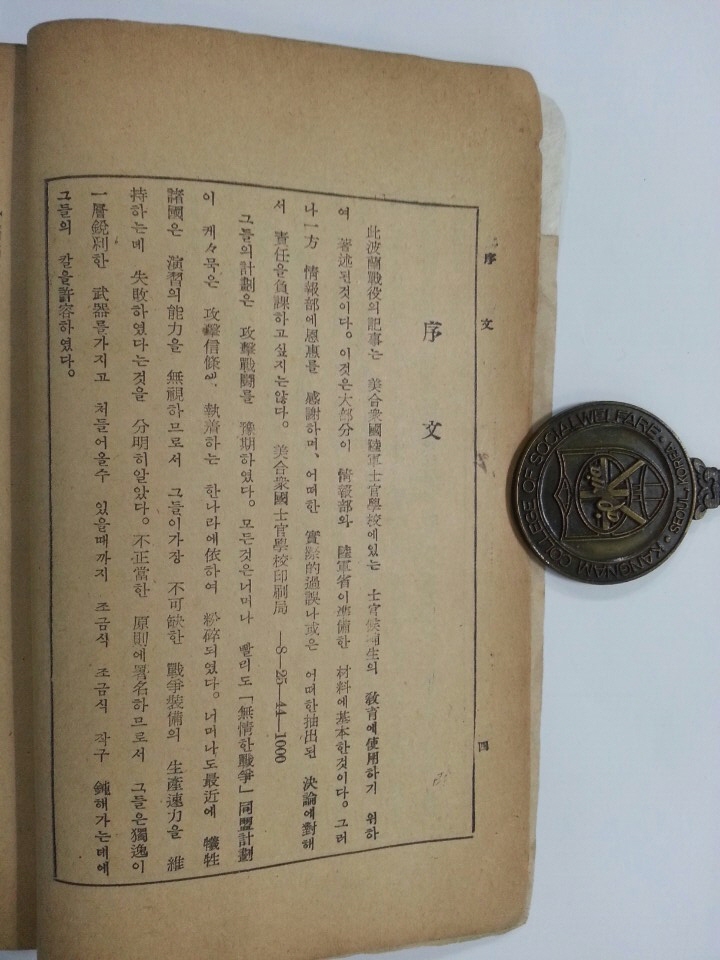 序文
四
序文
此波蘭戰役의記事는 美合衆國陸軍士官學校에있는 士官候補生의 敎育에使用하기 위하
여 著述된것이다. 이것은大部分이 情報部와 陸軍省이準備한 材料에基本한것이다. 그러
나一方 情報部에恩惠를 感謝하며, 어떠한 實際的過誤나或은 어떠한抽出된 決論에對해
서 責任을負課하고싶지는않다. 美合衆國士官學校印刷局 —8—25—44—1000
그들의計劃은 攻擊戰鬪를 豫期하였다. 모든것은너머나 빨리도「無情한戰爭」同盟計劃
이 케々묵은 攻擊信條에 執着하는 한나라에依하여 粉碎되였다. 너머나도最近에 犧牲
諸國은 演習의能力을 無視하므로서 그들이가장 不可缺한 戰爭裝備의 生產速力을 維
持하는데 失敗하였다는것을 分明히알았다. 不正當한 原則에署名하므로서 그들은獨逸이
一層銳利한 武器를가지고 처들어올수 있을때까지 조금식 조금식 작구 鈍해가는데에
그들의 칼을許容하였다.
KANGNAM COLLEGE OF SOCIAL WELFARE
SEOUL KOREA